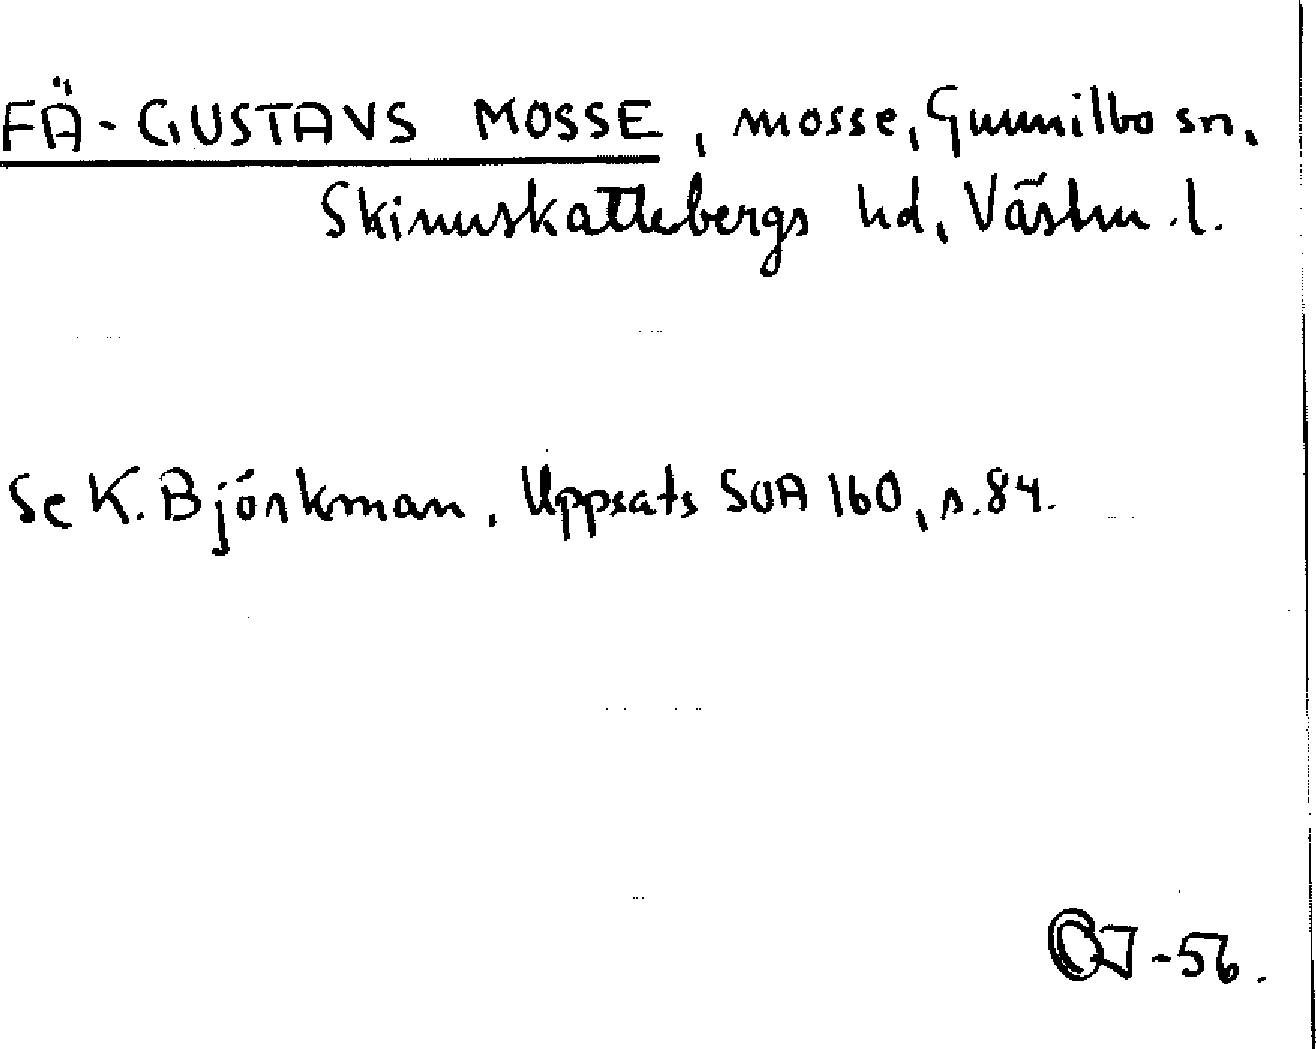 FÄ-GUSTAVS MOSSE, mosse, Gunnilbo sn,
Skinnskattebergs hd, Västm. l.
Se K. Björkman, Uppsats SOA 160, s. 84.
OJ-56.